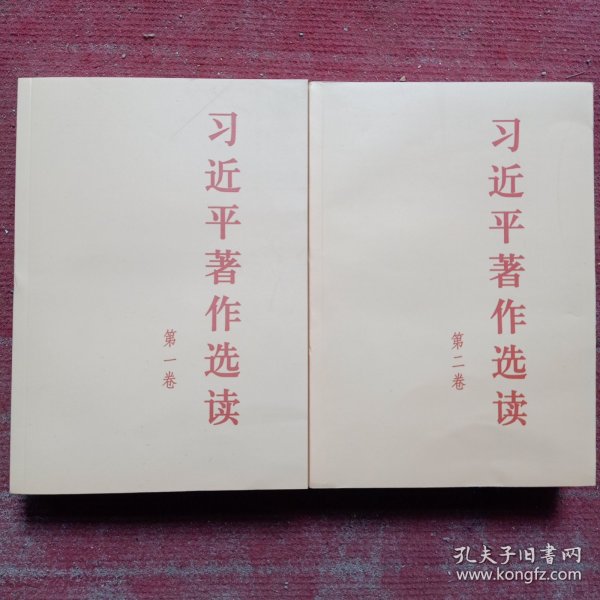 习近平著作选读
第一卷
习近平著作选读
第二卷
孔夫子旧书网
www.kongfz.com